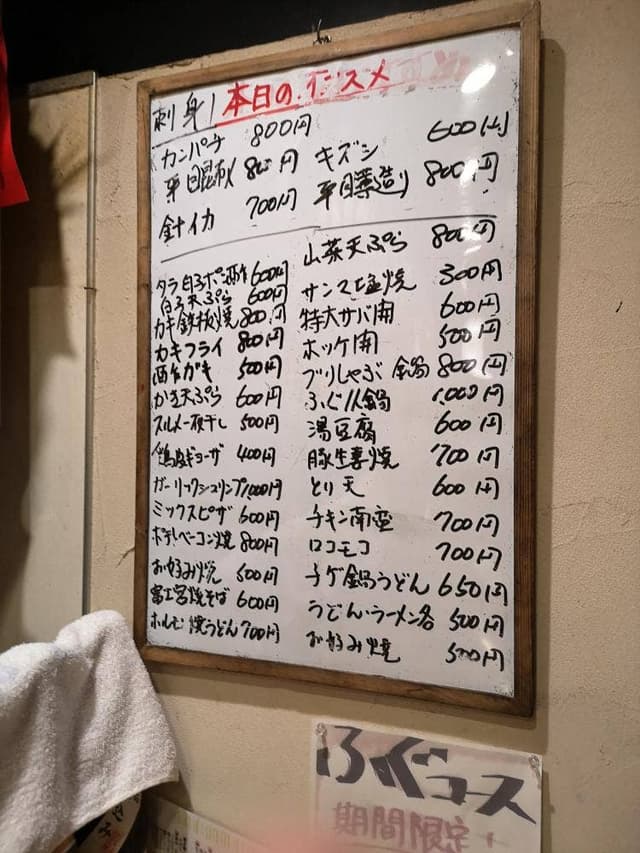 刺身 本日のオススメ
カンパチ 800円
キズシ 600円
平目昆布〆 800円
平目薄造り 800円
針イカ 700円
タラ白子ポン酢 600円
白子天ぷら 600円
カキ鉄板焼 800円
カキフライ 800円
酢ガキ 500円
かき天ぷら 600円
スルメ一夜干し 500円
鶏塩ギョーザ 400円
ガーリックシュリンプ 1,000円
ミックスピザ 600円
ポテトベーコン焼 800円
お好み焼 500円
富士宮焼そば 600円
ホルモン焼うどん 700円
山菜天ぷら 800円
サンマ塩焼 300円
特大サバ開 600円
ホッケ開 500円
ブリしゃぶ鍋 800円
ふぐ小鍋 1,000円
湯豆腐 600円
豚生姜焼 700円
とり天 600円
チキン南蛮 700円
ロコモコ 700円
チゲ鍋うどん 650円
うどん・ラーメン各 500円
お好み焼 500円
ふぐコース
期間限定